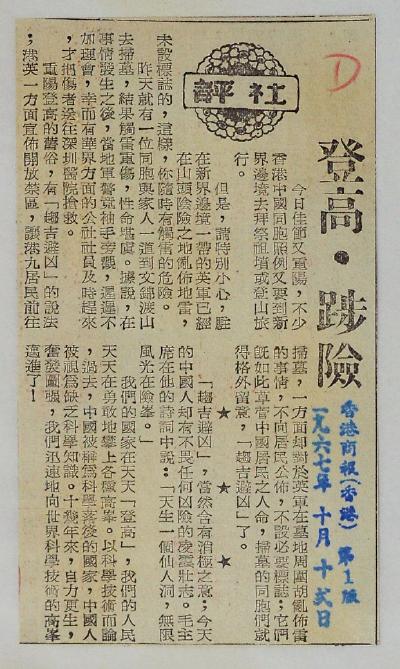 D
登高·踄險
香港商報(香港) 第1版
一九六七年 十月 十弍日
社評
今日佳節又重陽，不少
香港中國同胞照例又要到新
界邊境去拜祭祖墳或登山旅
行。
但是，請特別小心，駐
在新界邊境一帶的英軍已經
在山險之地亂佈地雷，
未設標誌的，這樣，你隨時有觸雷的危險。
昨天就有一位同胞與家人一道到文錦渡山
去掃墓，結果觸雷重傷，性命堪虞。據說，在
事情發生之後，當地軍警竟袖手旁觀，遲遲不
加理會，幸而有華界方面的公社社員及時趕來
，才把傷者送往深圳醫院搶救。
重陽登高的舊俗，有「趨吉避凶」的說法
；港英一方面宣佈開放禁區，讓港九居民前往
掃墓，一方面却對於英軍在墓地周圍胡亂佈雷
的事情，不向居民公佈，不設必要標誌；它們
旣如此草菅中國居民之人命，掃墓的同胞們就
得格外留意，「趨吉避凶」了。
★ ★ ★
「趨吉避凶」，當然含有消極之意；今天
的中國人却有不畏任何凶險的凌雲壯志。毛主
席在他的詩詞中說：「天生一個仙人洞，無限
風光在險峯。」
我們的國家在天天「登高」，我們的人民
天天在勇敢地攀上各種高峯。以科學技術而論
，過去，中國被稱爲科學落後的國家，中國人
被視爲缺乏科學知識。十幾年來，自力更生，
奮發圖強，我們迅速地向世界科學技術的高峯
邁進了！